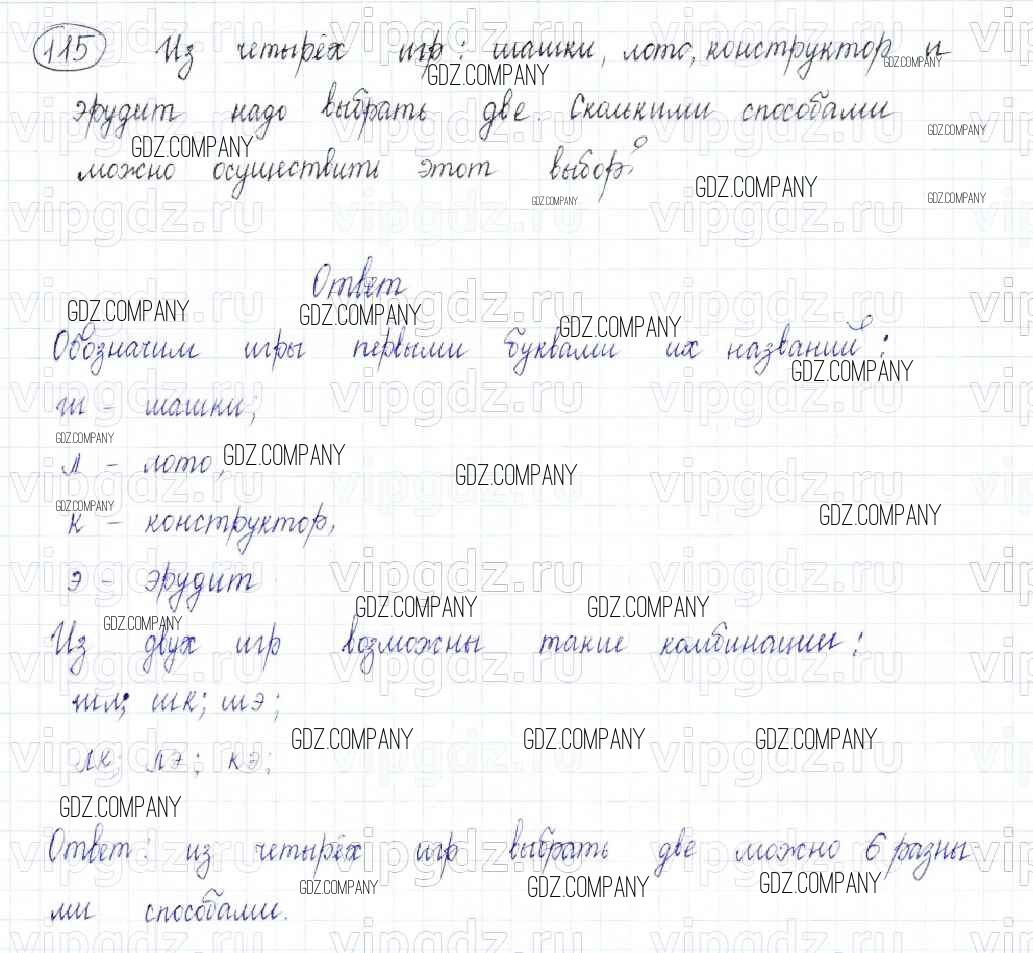 115 Из четырёх игр: шашки, лото, конструктор и
эрудит надо выбрать две. Сколькими способами
можно осуществить этот выбор?
Ответ
Обозначим игры первыми буквами их названий:
ш - шашки;
л - лото,
к - конструктор,
э - эрудит
Из двух игр возможны такие комбинации:
шл; шк; шэ;
лк; лэ; кэ;
Ответ: из четырёх игр выбрать две можно 6 разны-
ми способами.
GDZ.COMPANY
vipgdz.ru